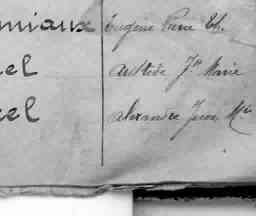 miaux Eugène Pierre Et.
el Aristide Jn Marie
el Alexandre Jean Mie